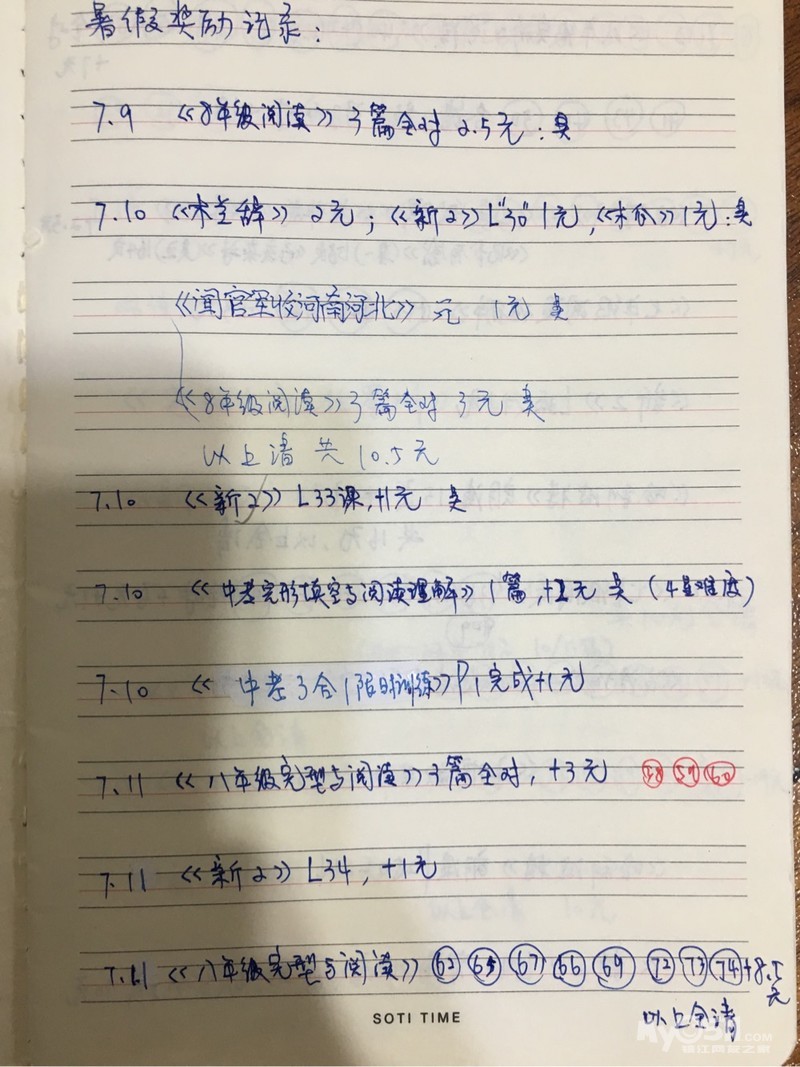 暑假奖励记录:
7.9 《8年级阅读》3篇全对 2.5元:吴
7.10 《木兰辞》2元;《新2》L"30"1元,《木瓜》1元:吴
《闻官军收河南河北》元 1元 吴
《8年级阅读》3篇全对 3元 吴
以上清 共10.5元
7.10 《新2》L33课,+1元 吴
7.10 《中考完形填空与阅读理解》1篇,+2元 吴(4星难度)
7.10 《中考3合1限时训练》P1完成+1元
7.11 《八年级完型与阅读》3篇全对,+3元 58 59 60
7.11 《新2》L34,+1元
7.11 《八年级完型与阅读》62 65 67 66 69 72 73 74 +8.5元
以上全清
SOTI TIME